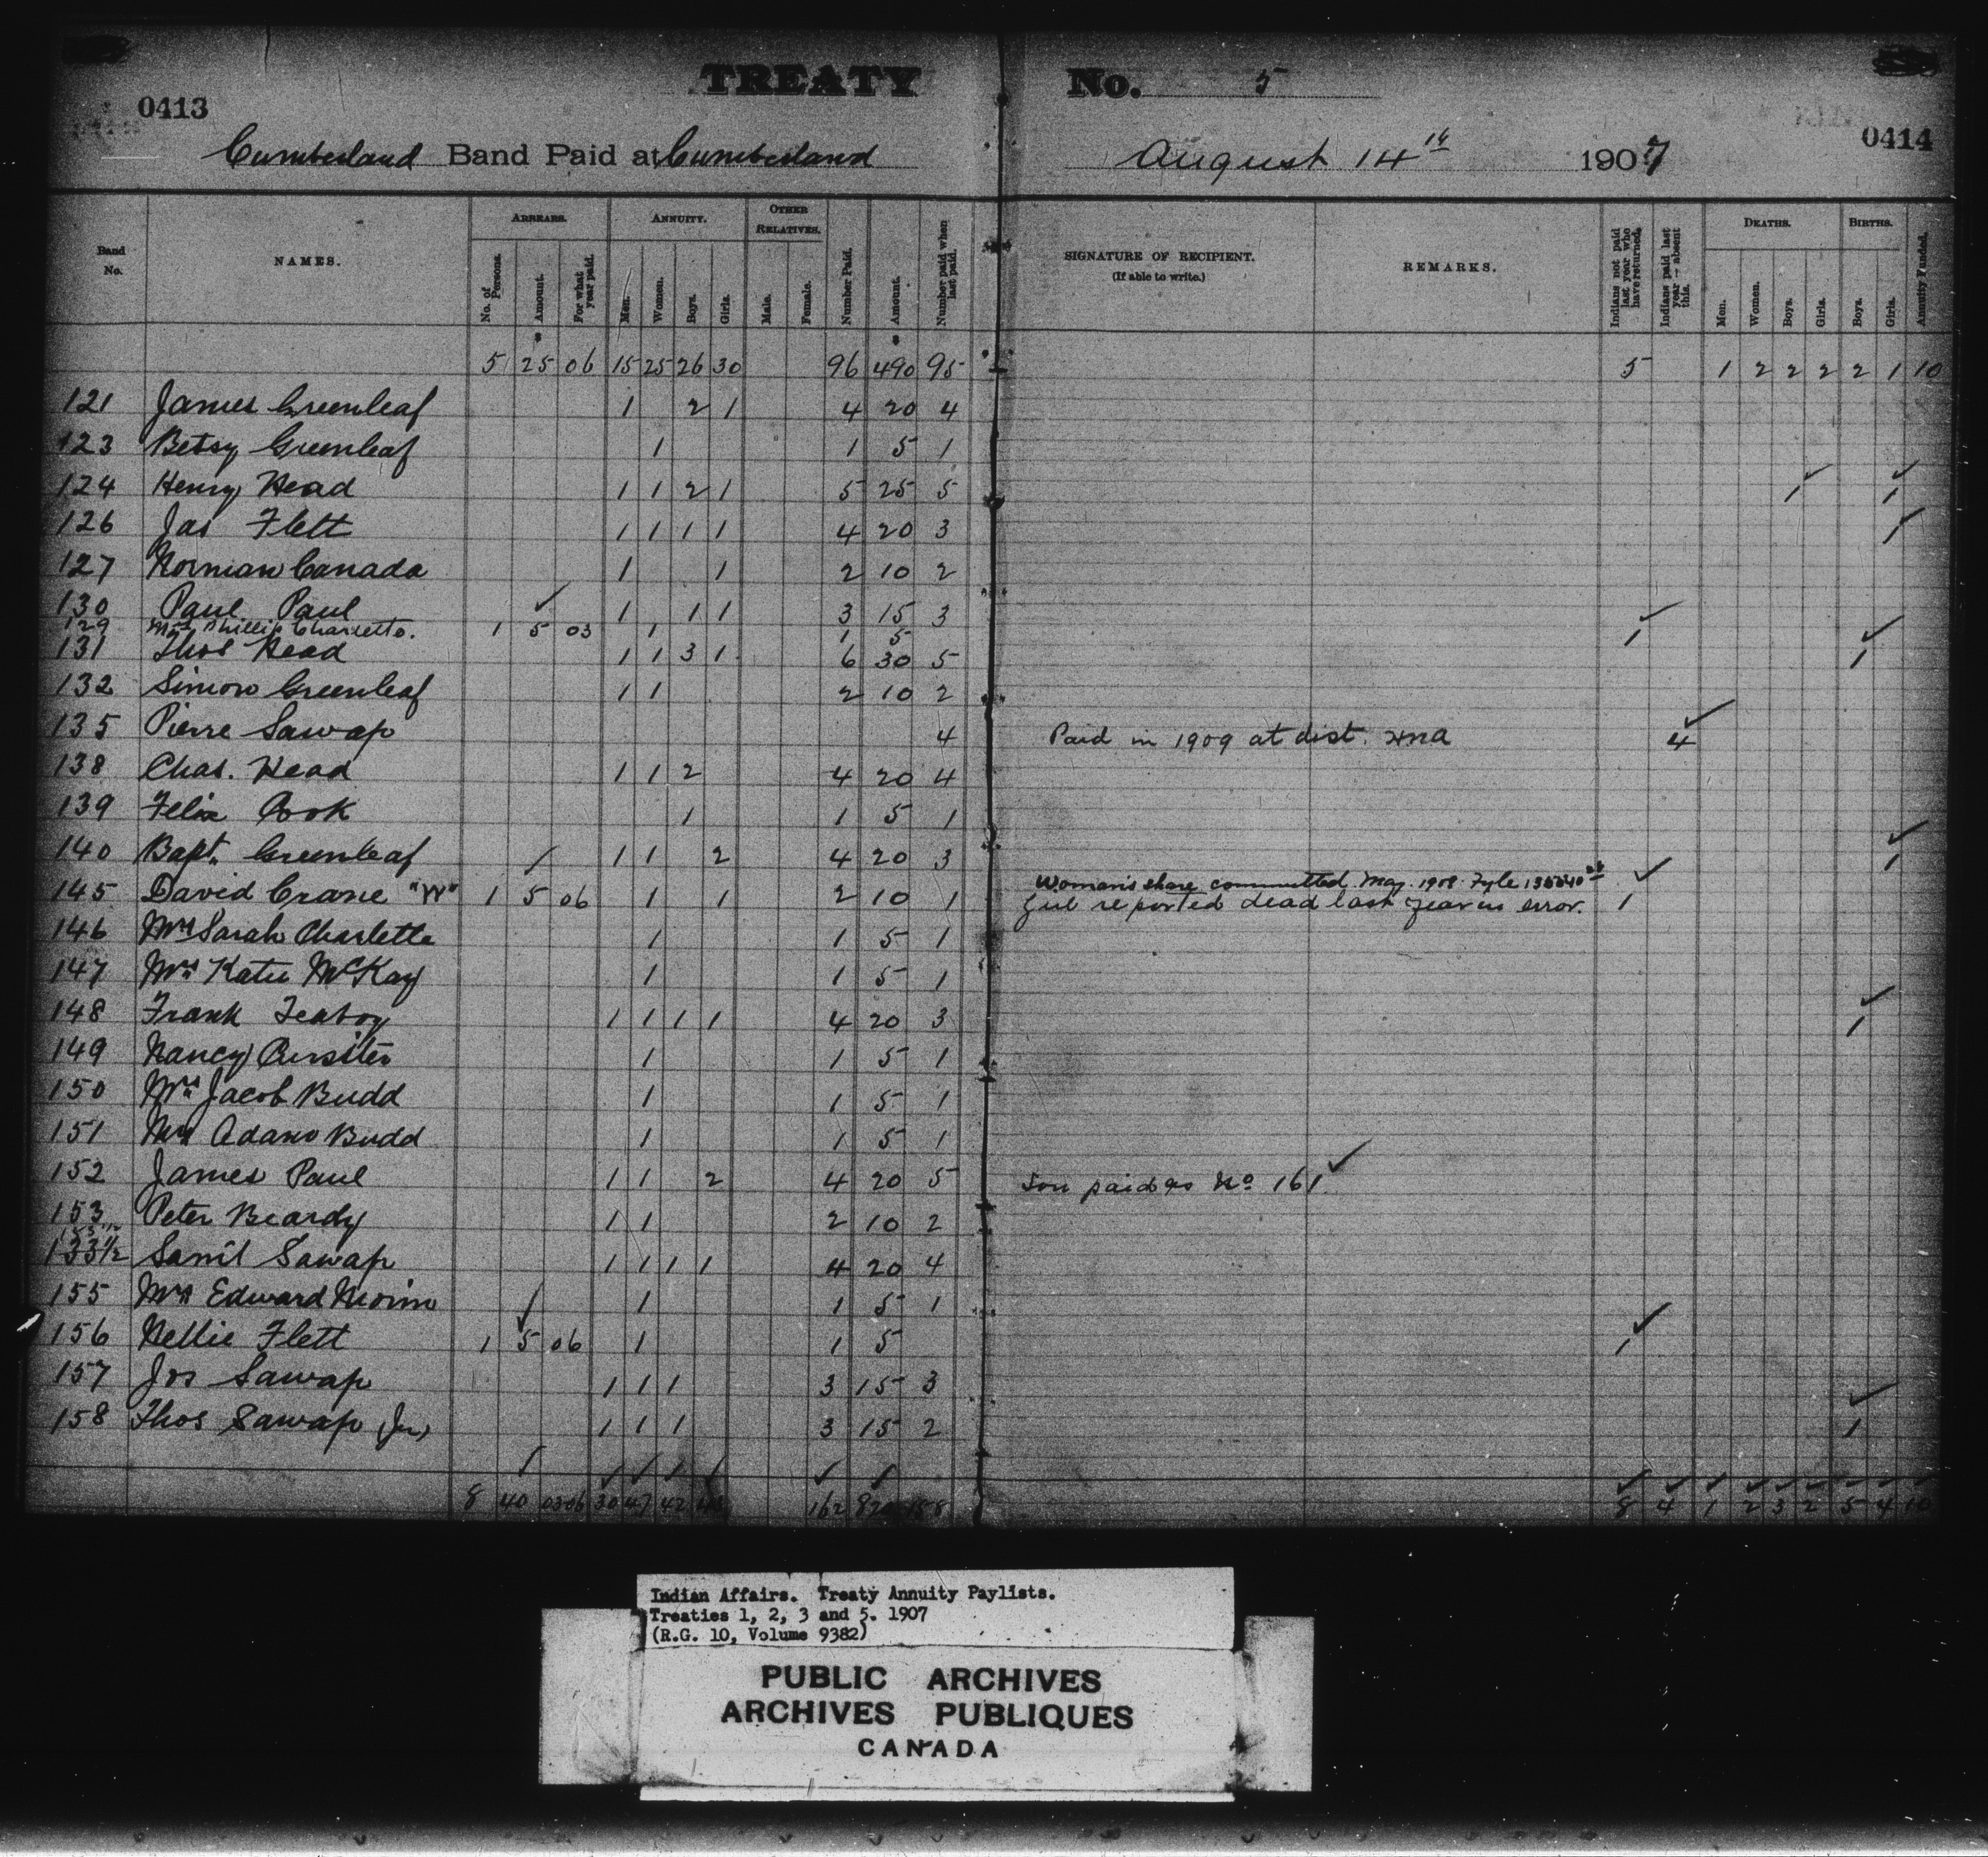 TREATY No. 5
0413
0414
Cumberland Band Paid at Cumberland August 14th 1907
Band No. NAMES. ARREARS. No. of Persons. Amount. For what year paid. ANNUITY. Men. Women. Boys. Girls. OTHER RELATIVES. Male. Female. Number Paid. Amount. Number paid when last paid. SIGNATURE OF RECIPIENT. (If able to write.) REMARKS. Indians not paid last year who have returned. Indians paid last year — absent this. DEATHS. Men. Women. Boys. Girls. BIRTHS. Boys. Girls. Annuity Funded.
5 25 06 15 25 26 30 96 490 95 5 1 2 2 2 2 1 10
121 James Greenleaf 1 2 1 4 20 4
123 Betsy Greenleaf 1 1 5 1
124 Henry Head 1 1 2 1 5 25 5 1 1
126 Jas Flett 1 1 1 1 4 20 3 1
127 Norman Canada 1 1 2 10 2
130 Paul Paul 1 1 1 3 15 3
129 Mrs Phillip Charlette. 1 5 03 1 1 5 1
131 Thos Head 1 1 3 1 6 30 5 1
132 Simon Greenleaf 1 1 2 10 2
135 Pierre Sawap 4 Paid in 1909 at dist. 4
138 Chas. Head 1 1 2 4 20 4
139 Felix Cook 1 1 5 1
140 Bapt. Greenleaf 1 1 2 4 20 3 1
145 David Crane "W" 1 5 06 1 1 2 10 1 Woman's share commutted May. 1908 Fyle
Girl reported dead last year in error. 1
146 Mrs Sarah Charlette 1 1 5 1
147 Mrs Katie McKay 1 1 5 1
148 Frank Teaboy 1 1 1 1 4 20 3 1
149 Nancy Cursiter 1 1 5 1
150 Mrs Jacob Budd 1 1 5 1
151 Mrs Adam Budd 1 1 5 1
152 James Paul 1 1 2 4 20 5 Son paid as No 161
153 Peter Beardy 1 1 2 10 2
153 1/2
133 1/2 Saml Sawap 1 1 1 1 4 20 4
155 Mrs Edward Morin 1 1 5 1
156 Nellie Flett 1 5 06 1 1 5 1
157 Jos Sawap 1 1 1 3 15 3
158 Thos Sawap (Jr) 1 1 1 3 15 2 1
8 40 03 06 30 47 42 162 158 8 4 1 2 3 2 5 4 10
Indian Affairs. Treaty Annuity Paylists.
Treaties 1, 2, 3 and 5. 1907
(R.G. 10, Volume 9382)
PUBLIC ARCHIVES
ARCHIVES PUBLIQUES
CANADA